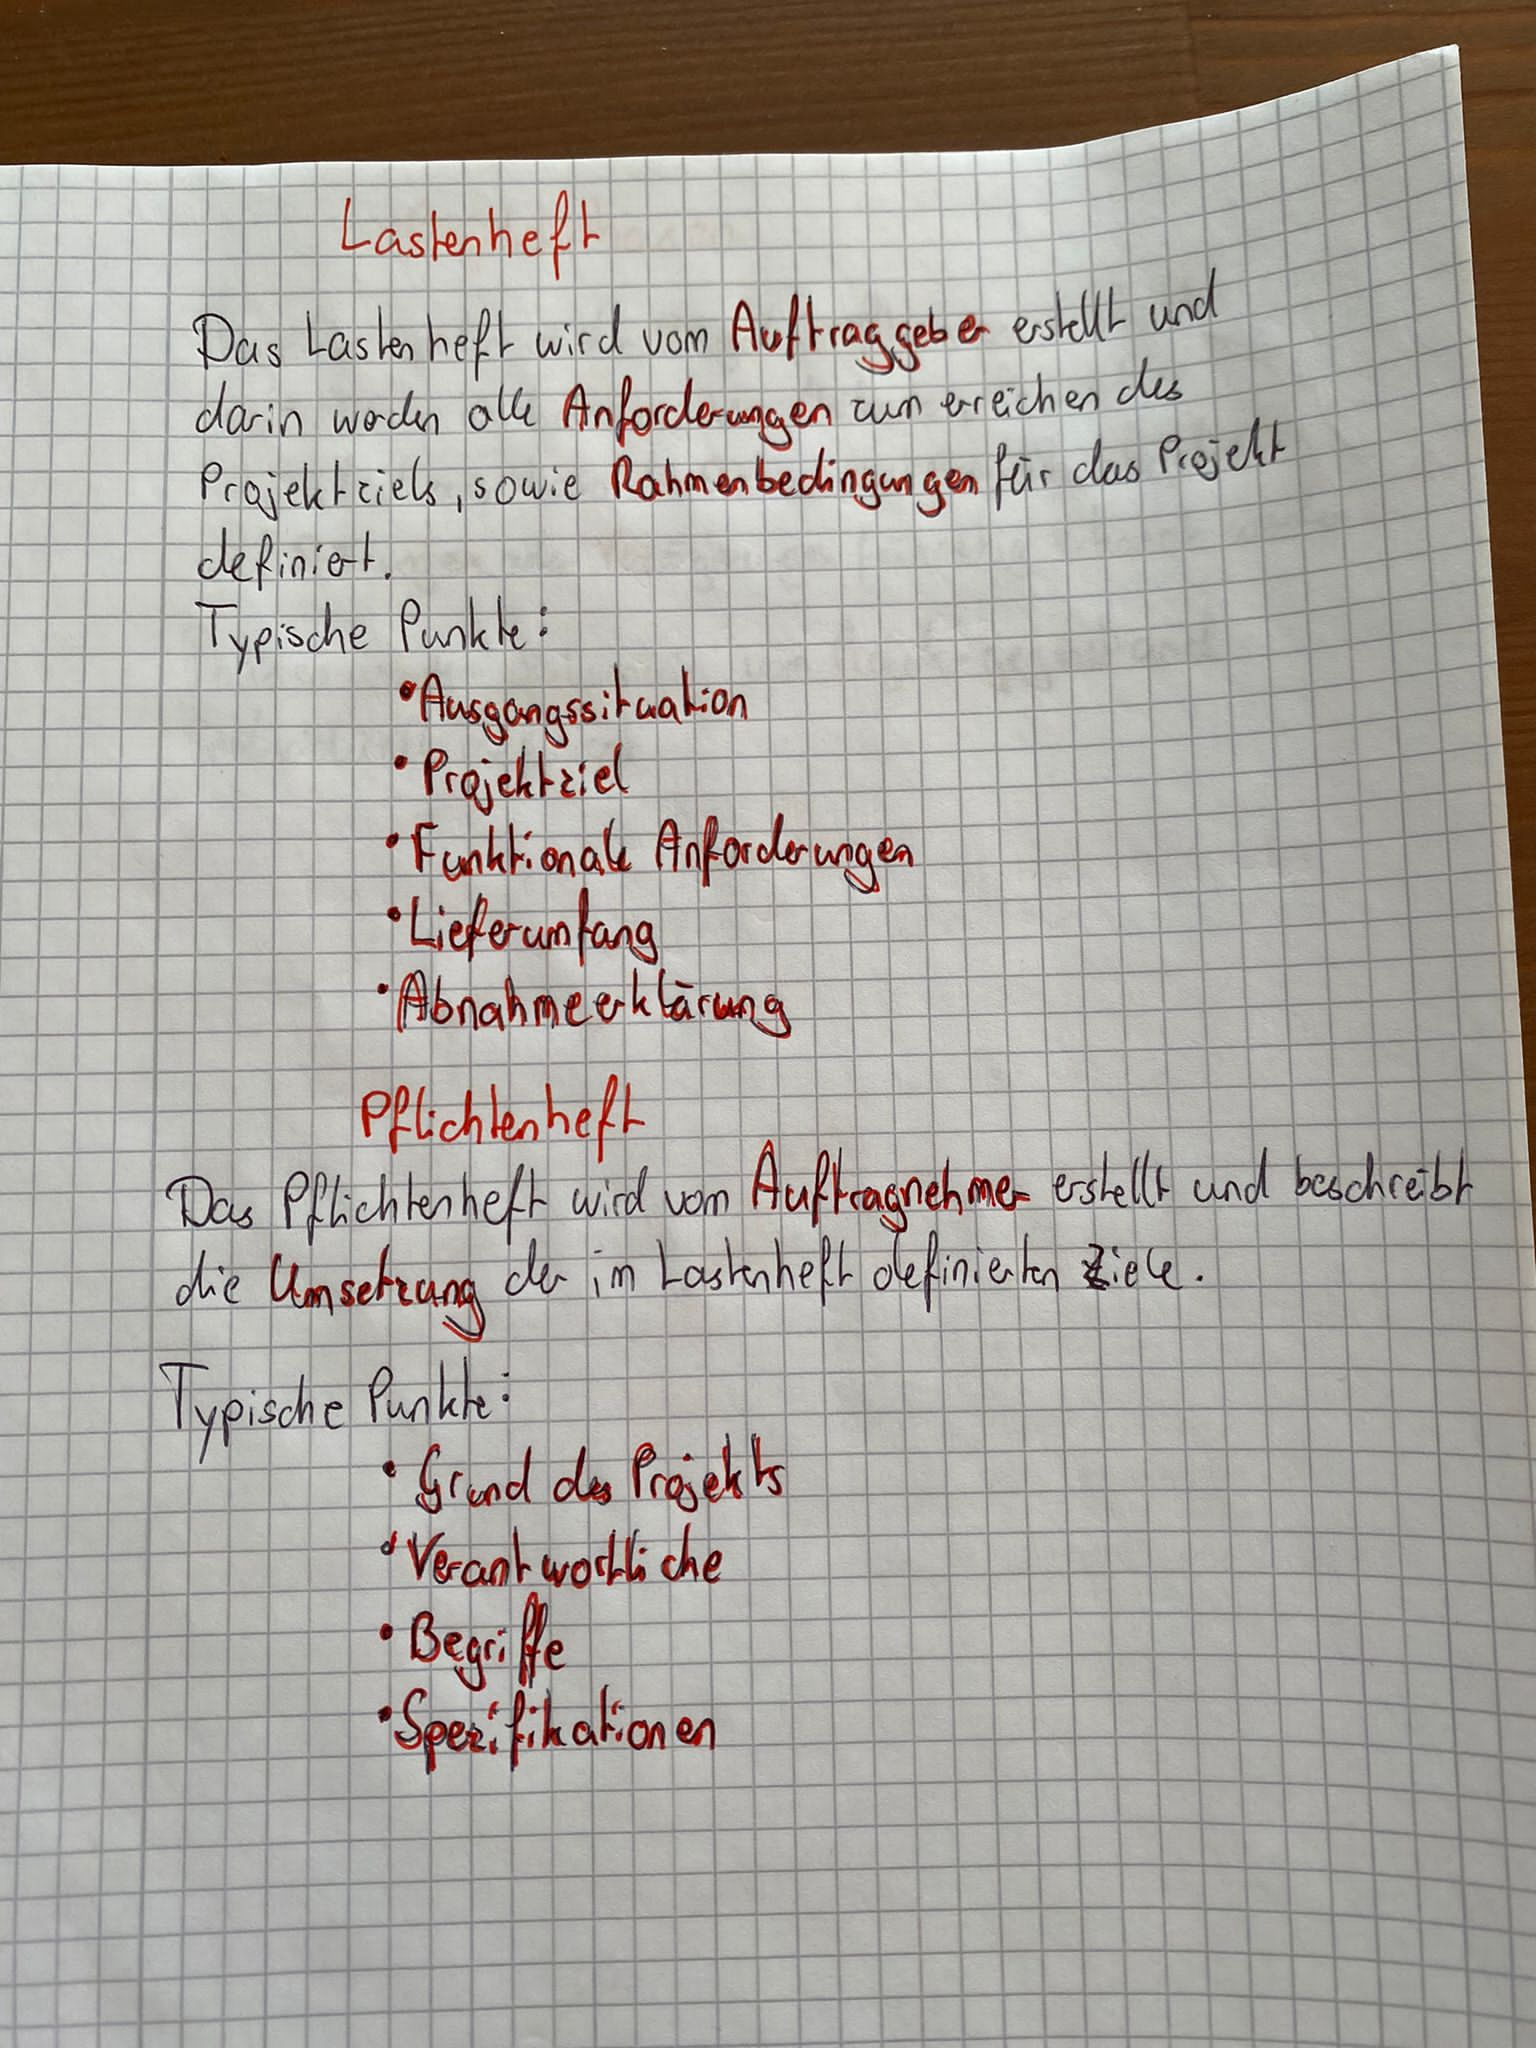 Lastenheft
Das Lastenheft wird vom Auftraggeber erstellt und
darin werden alle Anforderungen zum erreichen des
Projektziels, sowie Rahmenbedingungen für das Projekt
definiert.
Typische Punkte:
• Ausgangssituation
• Projektziel
• Funktionale Anforderungen
• Lieferumfang
• Abnahmeerklärung
Pflichtenheft
Das Pflichtenheft wird vom Auftragnehmer erstellt und beschreibt
die Umsetzung der im Lastenheft definierten Ziele.
Typische Punkte:
• Grund des Projekts
• Verantwortliche
• Begriffe
• Spezifikationen